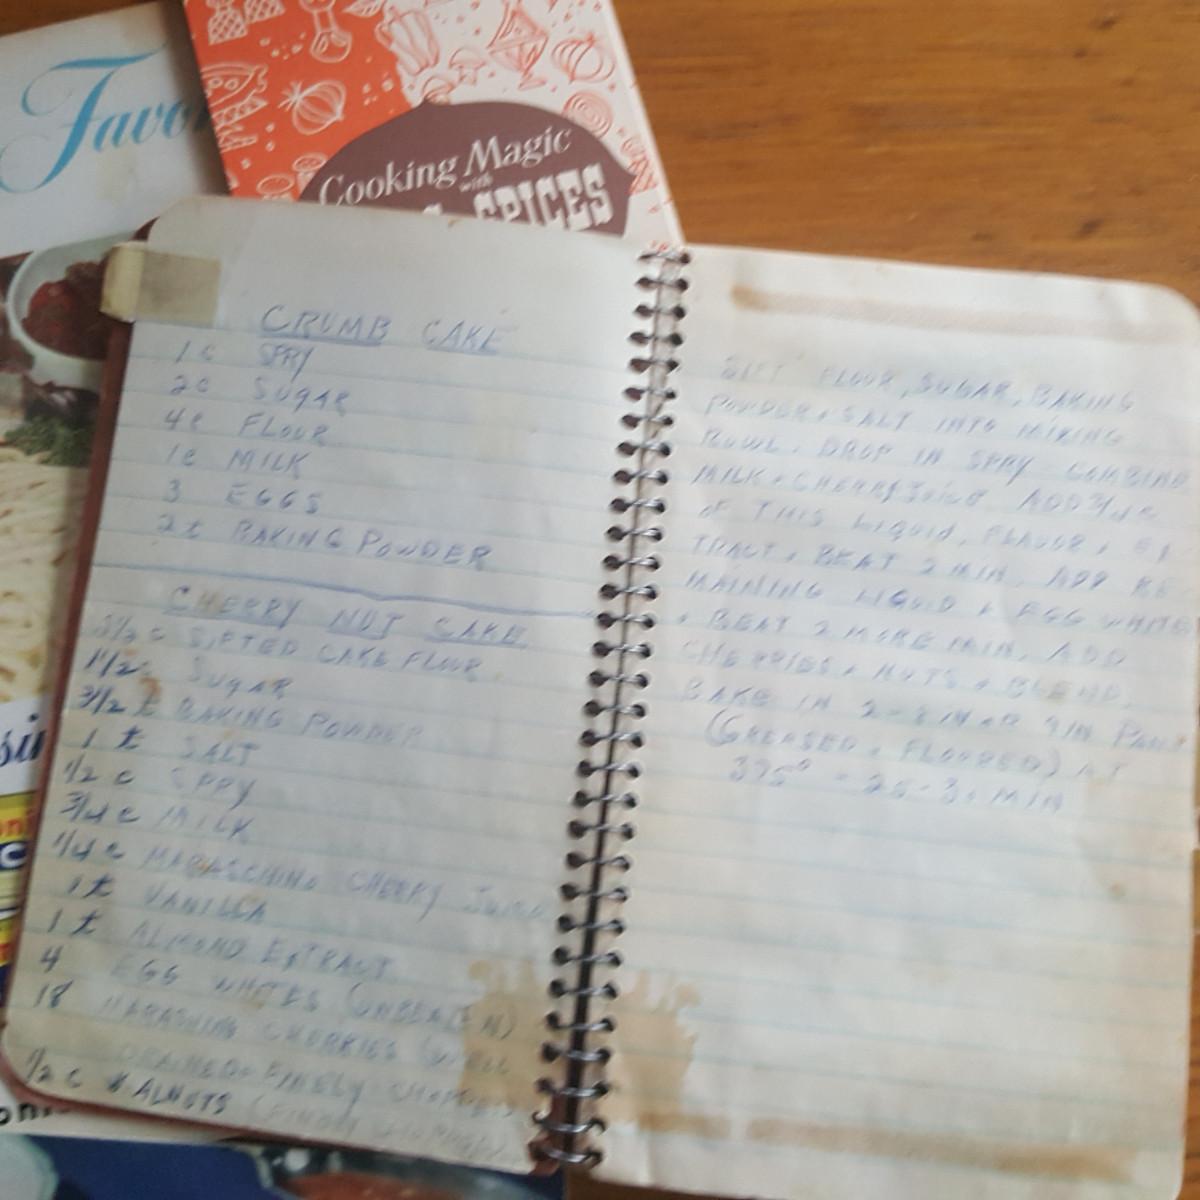 Favo
Cooking Magic
with
SPICES
CRUMB CAKE
1 c SPRY
2 c SUGAR
4 c FLOUR
1 c MILK
3 EGGS
2 t BAKING POWDER
CHERRY NUT CAKE
SIFTED CAKE FLOUR
1 1/2 c SUGAR
3 1/2 t BAKING POWDER
1 t SALT
1/2 c SPRY
3/4 c MILK
1/4 c MARASCHINO CHERRY JUICE
1 t VANILLA
1 t ALMOND EXTRACT
4 EGG WHITES (UNBEATEN)
18 MARASHINO CHERRIES (WELL
DRAINED + FINELY CHOPPED)
1/2 c WALNUTS (FINELY CHOPPED)
SIFT FLOUR, SUGAR, BAKING
POWDER + SALT INTO MIXING
BOWL. DROP IN SPRY COMBINE
MILK + CHERRY JUICE ADD 3/4 c
OF THIS LIQUID, FLAVOR, EX
TRACT, BEAT 2 MIN. ADD RE
MAINING LIQUID + EGG WHITE
+ BEAT 2 MORE MIN. ADD
CHERRIES + NUTS + BLEND.
BAKE IN 2 - 8 IN OR 9 IN PANS
(GREASED + FLOURED) AT
375° - 25 - 30 MIN